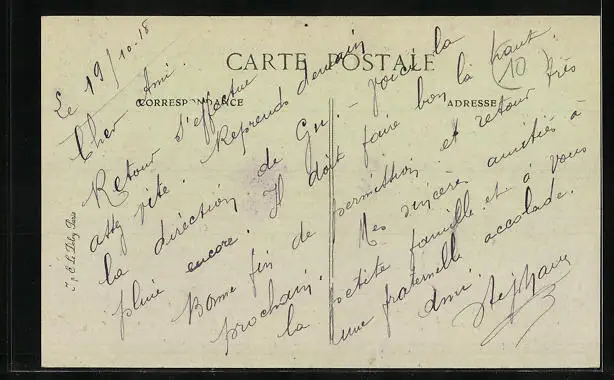 CARTE POSTALE
CORRESPONDANCE
ADRESSE
10
Le 19/10-18
Cher Ami.
Retour s'effectue
assez vite. Reprends demain
la direction de Gu. - voici la
pluie encore. Il doit faire bon là haut.
Bonne fin de permission et retour très
prochain. Mes sincères amitiés à
la petite famille et à vous
une fraternelle accolade.
Ami.
Stephane